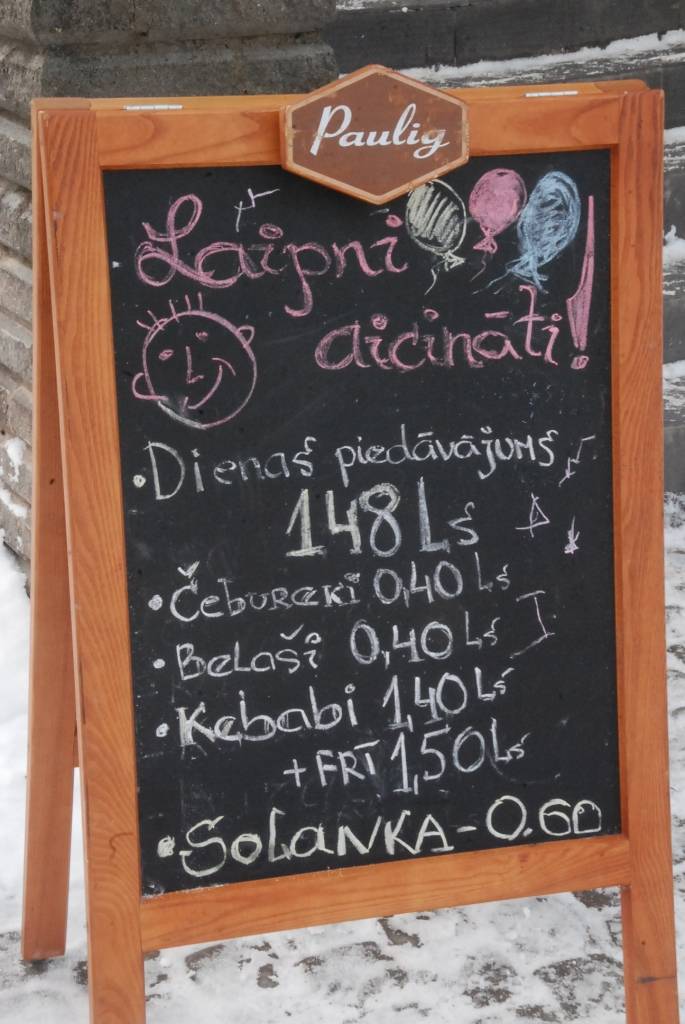 Paulig
Laipni
aicināti!
• Dienas piedāvājums
148 Ls
• Čebureki 0,40 Ls
• Belaši 0,40 Ls
• Kebabi 1,40 Ls
+ FRĪ 1,50 Ls
• SoLANKA - 0.60